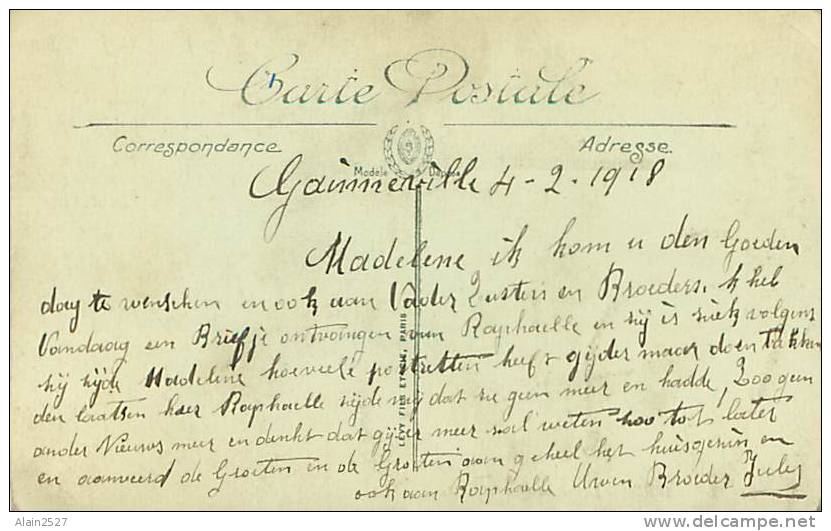 Carte Postale
Correspondance
Adresse
Modèle Déposé
Gainneville 4-2-1918
Madelene ik kom u den Goeden
dag te wenschen en ook aan Vader Zusters en Broeders. k heb
Vandaag een Briefje ontvangen van Raphaelle en hij is ziek volgens
hij zijde Madelene hoeveele postretten heeft gijder maar doen takken
den laatsen keer Raphaelle zijde mij dat ze geen meer en hadde, Zoo geen
ander Nieuws meer en denkt dat gijder meer zal weten hoo tot later
en aanveerd de Groeten en de Groeten aan geheel het huisgezin en
ook aan Raphaelle Uwen Broeder July
LEVY FILS ET CIE, PARIS
Alain2527
delcampe.net